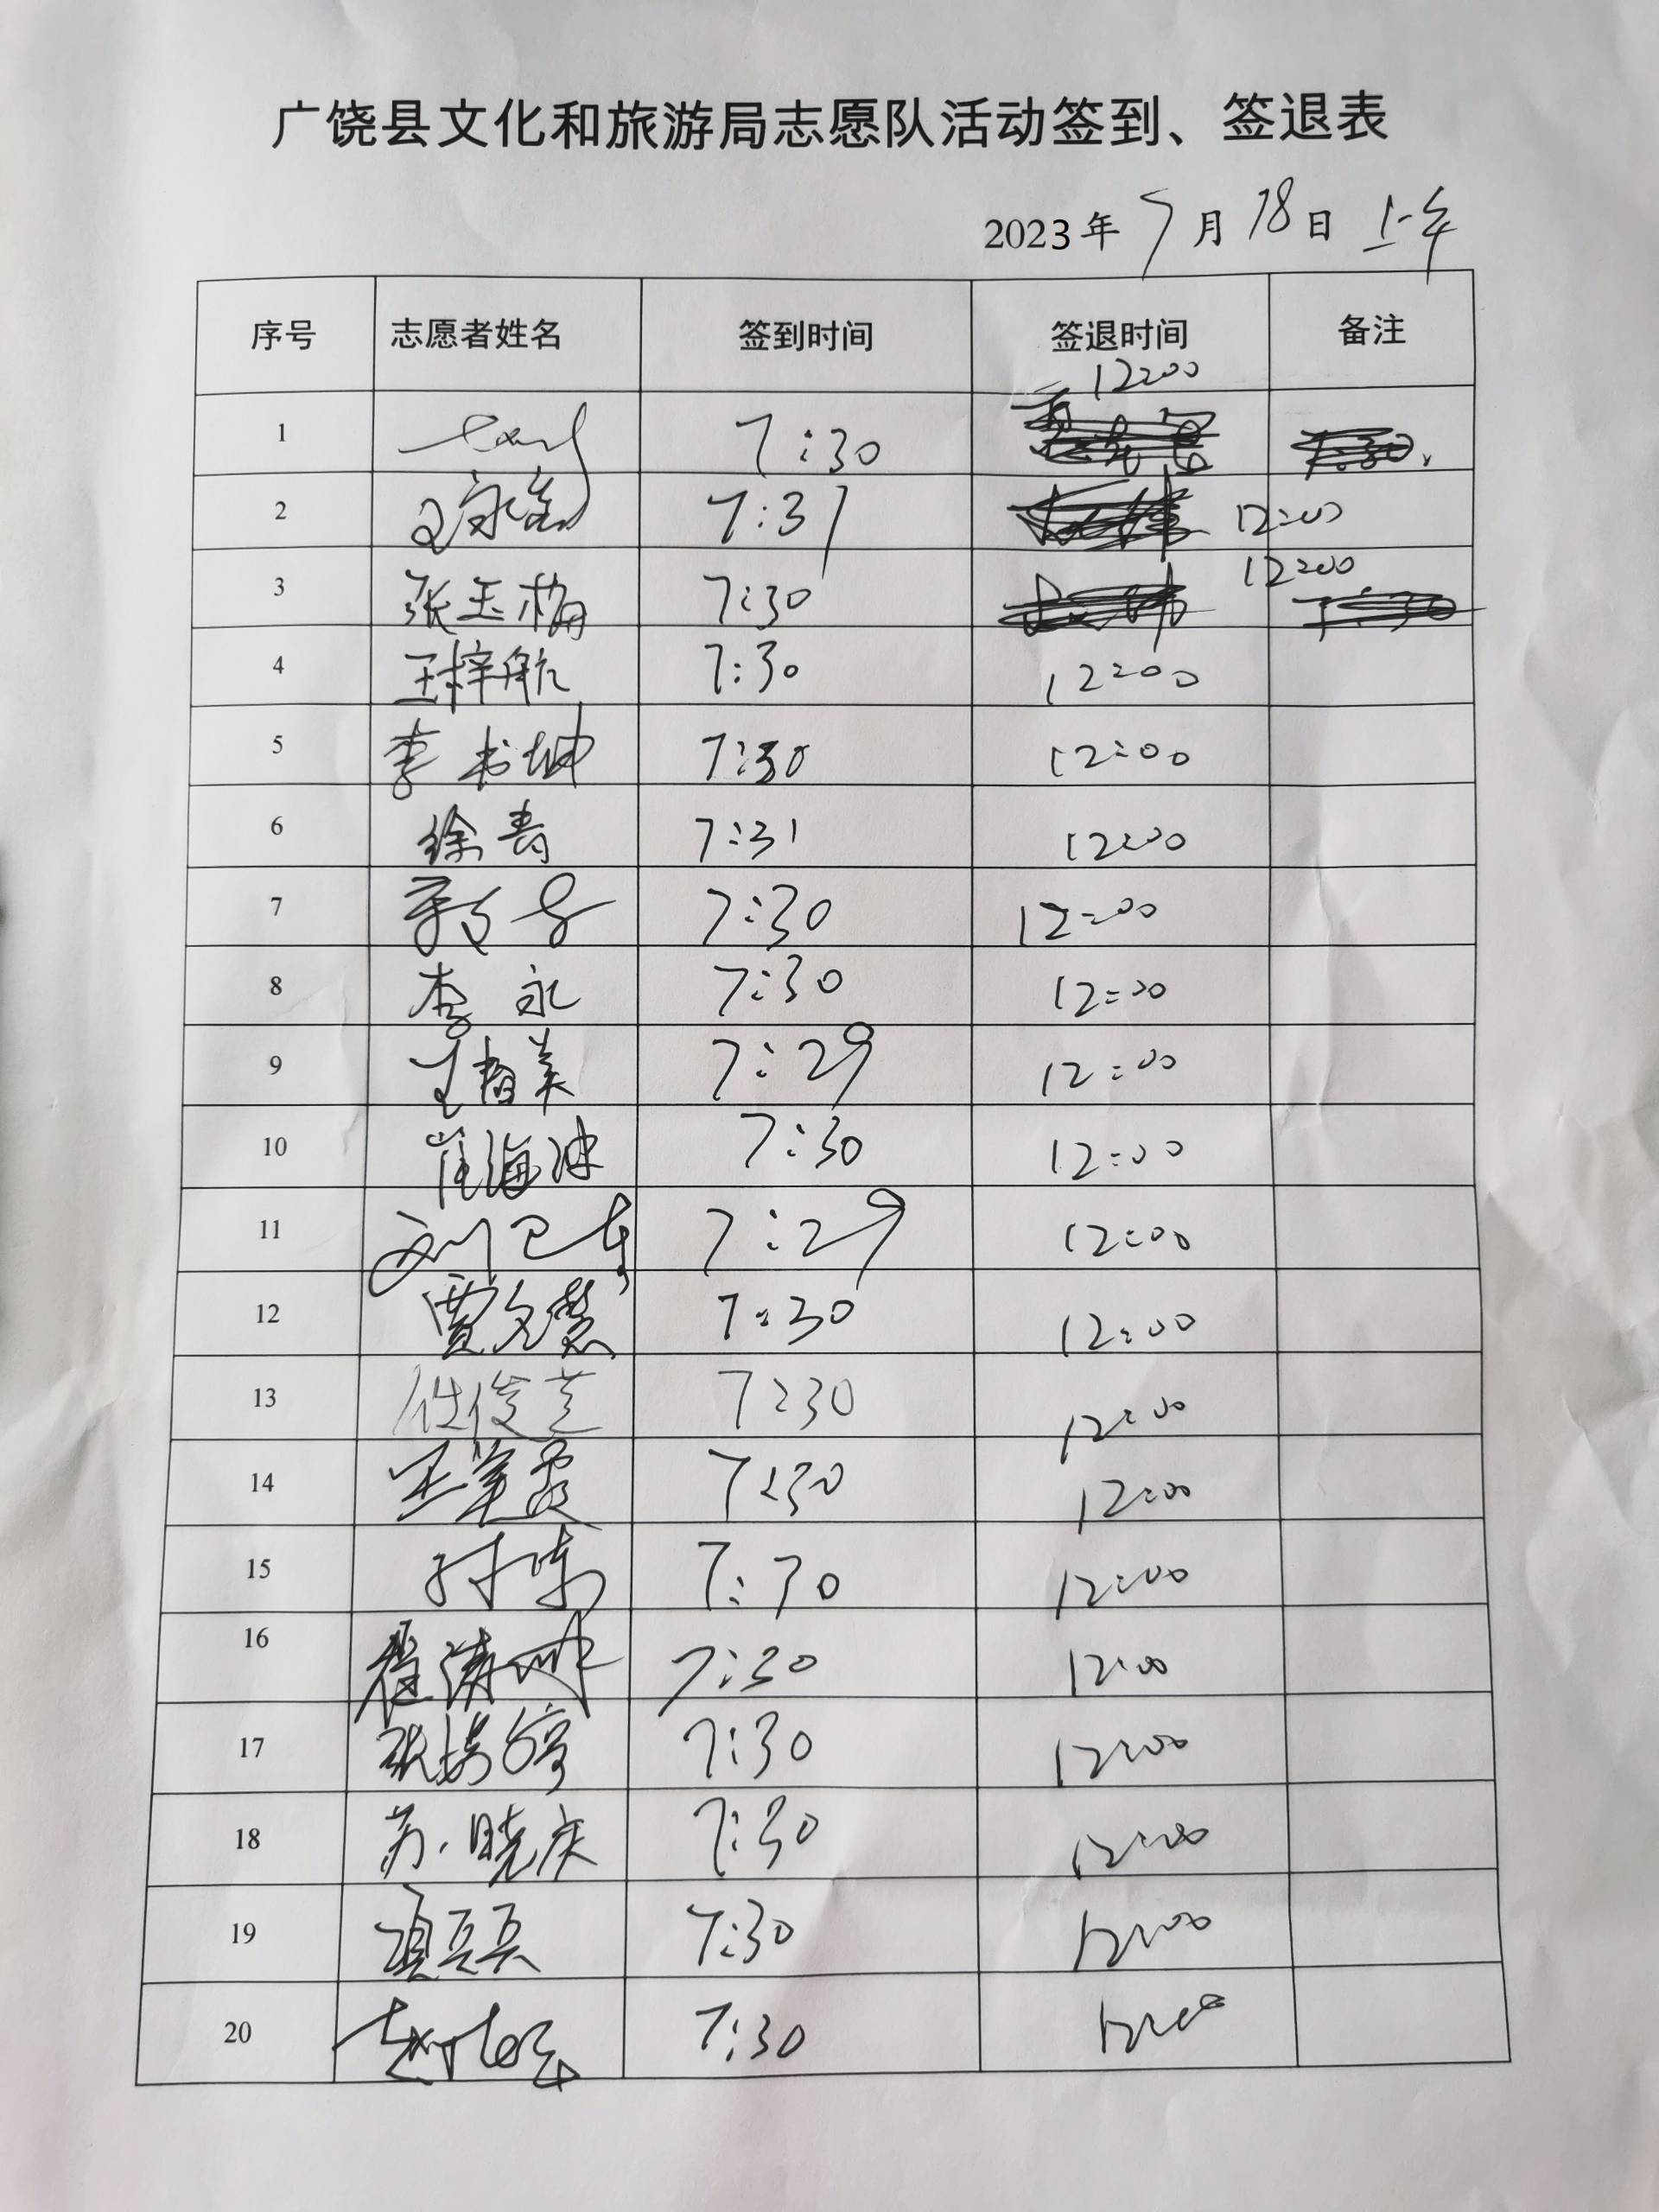 广饶县文化和旅游局志愿队活动签到、签退表
2023年 月18日 上午
序号 志愿者姓名 签到时间 签退时间 备注
1 7:30 12:00
2 7:31 12:00
3 张玉梅 7:30 12:00
4 王梓航 7:30 12:00
5 李书坤 7:30 12:00
6 徐寿 7:31 12:00
7 7:30 12:00
8 李永 7:30 12:00
9 7:29 12:00
10 崔海波 7:30 12:00
11 刘卫东 7:29 12:00
12 贾文慧 7:30 12:00
13 任俊芝 7:30 12:00
14 7:30 12:00
15 7:30 12:00
16 7:30 12:00
17 7:30 12:00
18 苏晓庆 7:30 12:00
19 7:30 12:00
20 7:30 12:00